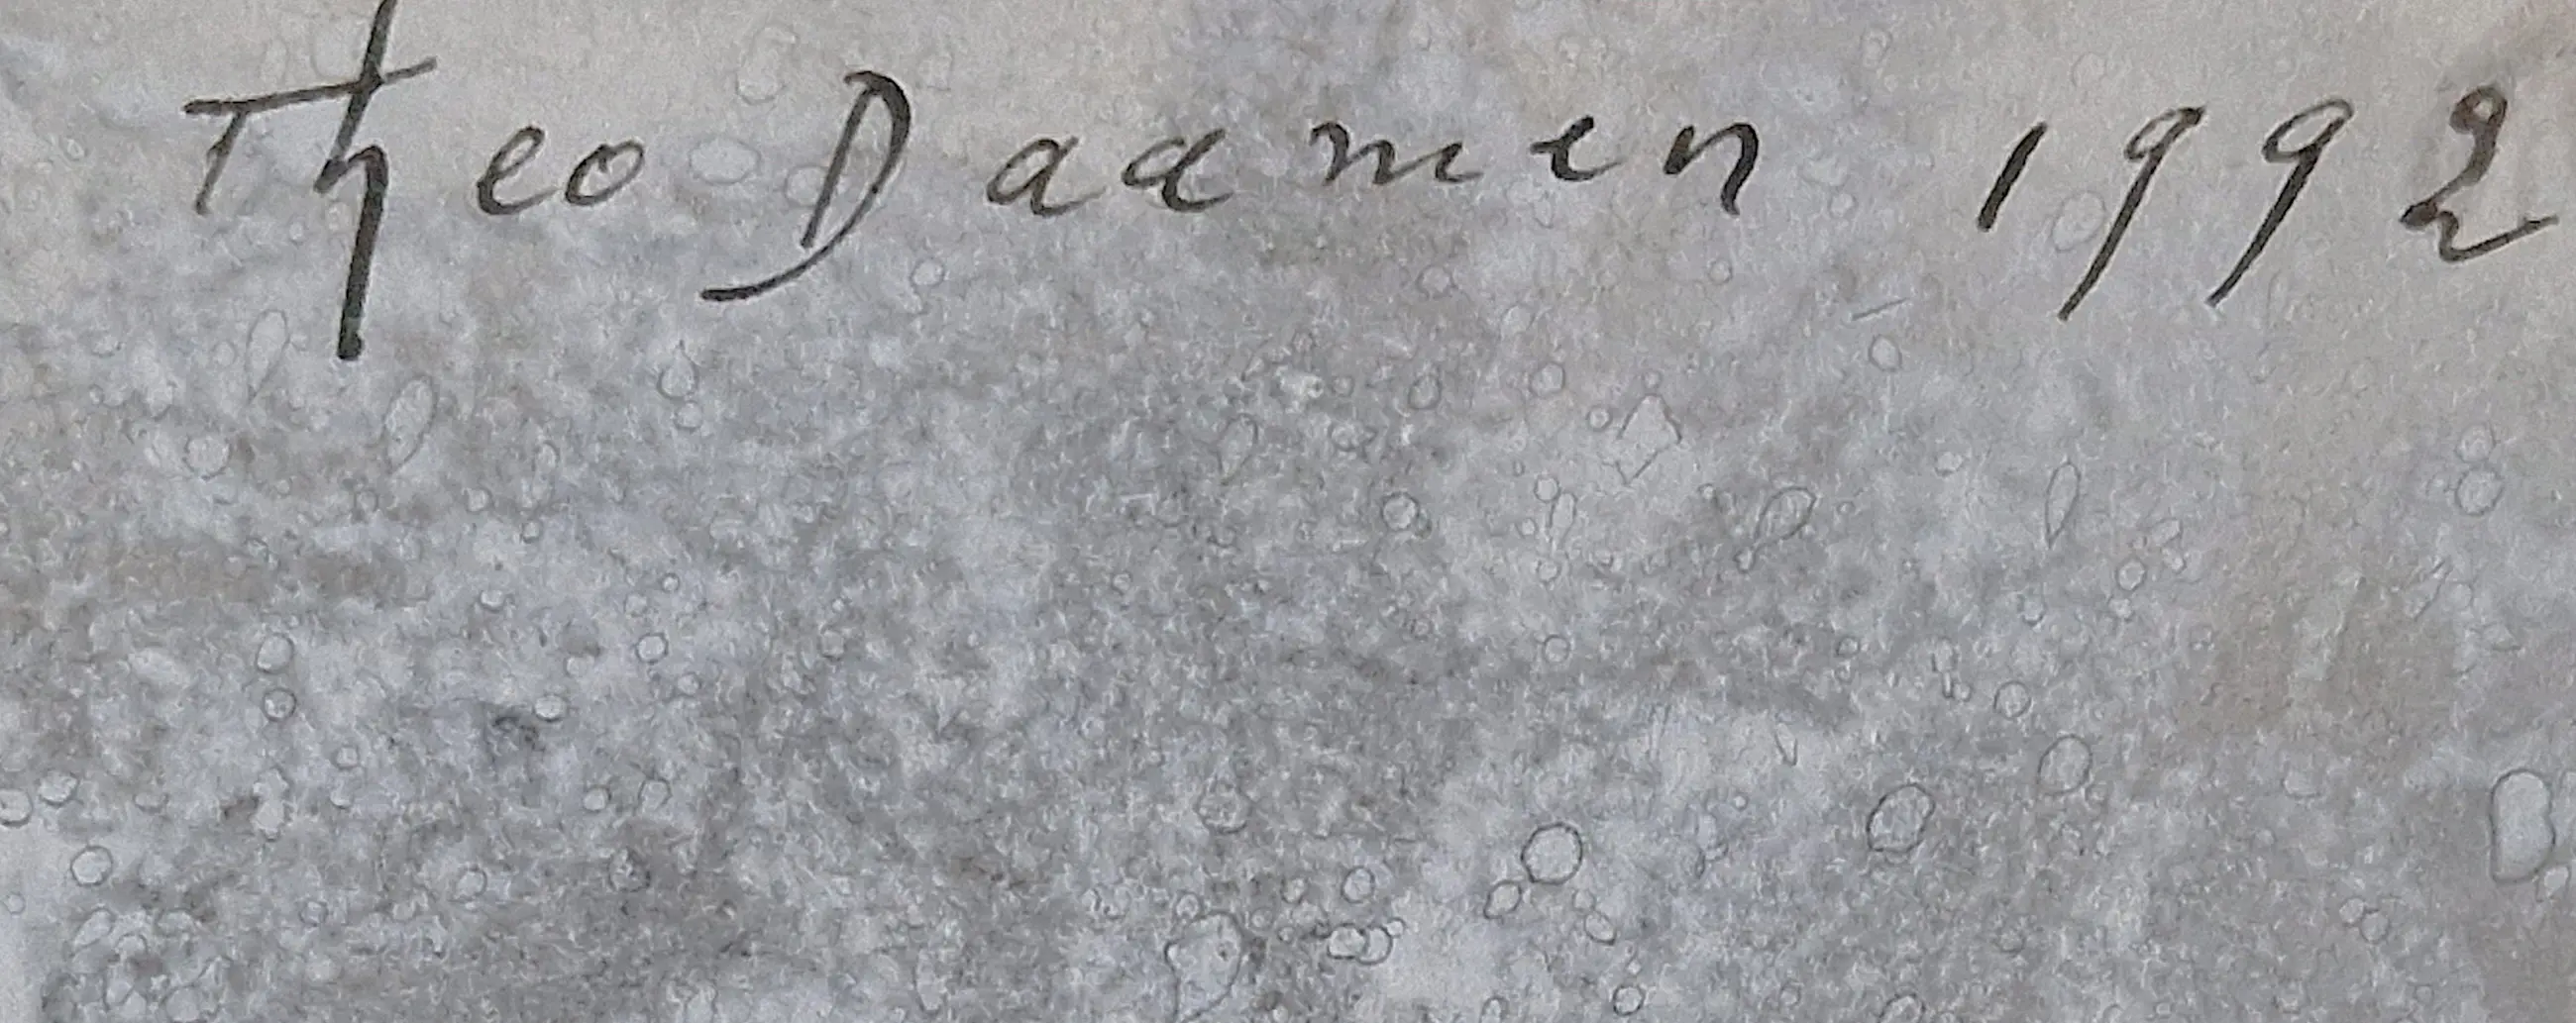 Theo Daamen 1992